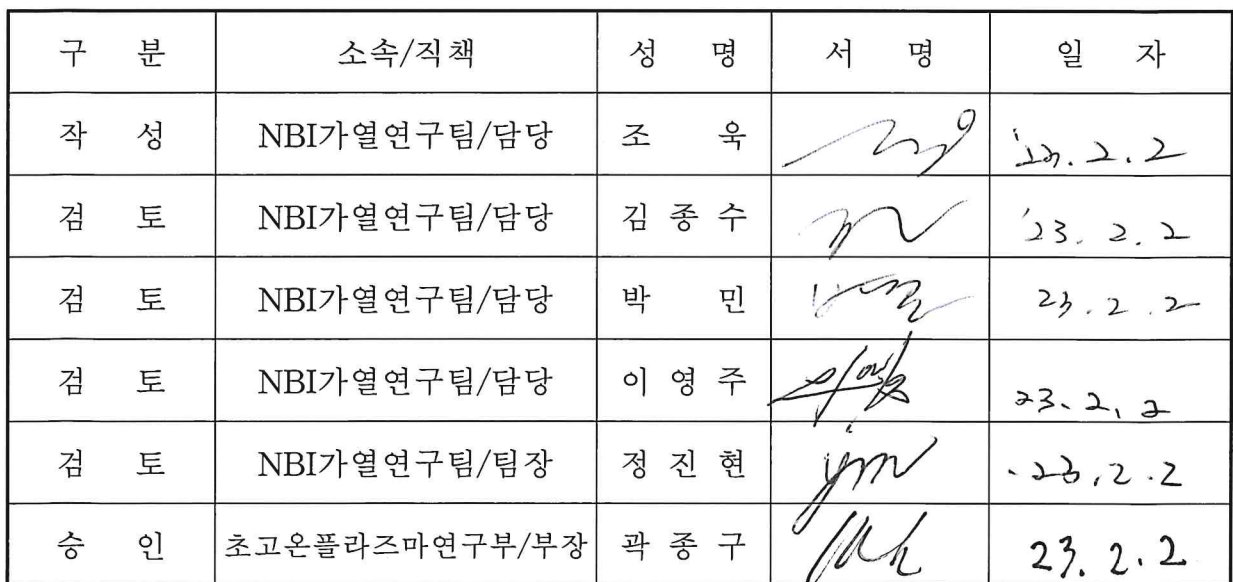 구 분 소속/직책 성 명 서 명 일 자
작 성 NBI가열연구팀/담당 조 욱 '23.2.2
검 토 NBI가열연구팀/담당 김 종 수 '23. 2. 2
검 토 NBI가열연구팀/담당 박 민 23. 2. 2
검 토 NBI가열연구팀/담당 이 영 주 23. 2. 2
검 토 NBI가열연구팀/팀장 정 진 현 23.2.2
승 인 초고온플라즈마연구부/부장 곽 종 구 23. 2. 2